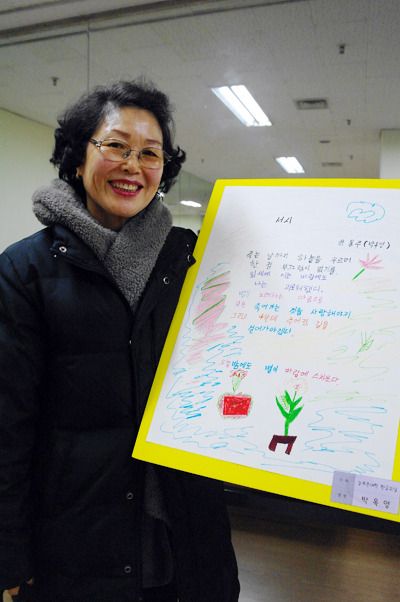 서시
윤동주(박옥영)
죽는 날까지 하늘을 우러러
한 점 부끄럼이 없기를,
잎새에 이는 바람에도
나는 괴로워했다.
별을 노래하는 마음으로
모든 죽어가는 것을 사랑해야지
그리고 나한테 주어진 길을
걸어가야겠다.
오늘밤에도 별이 바람에 스치운다
박옥영